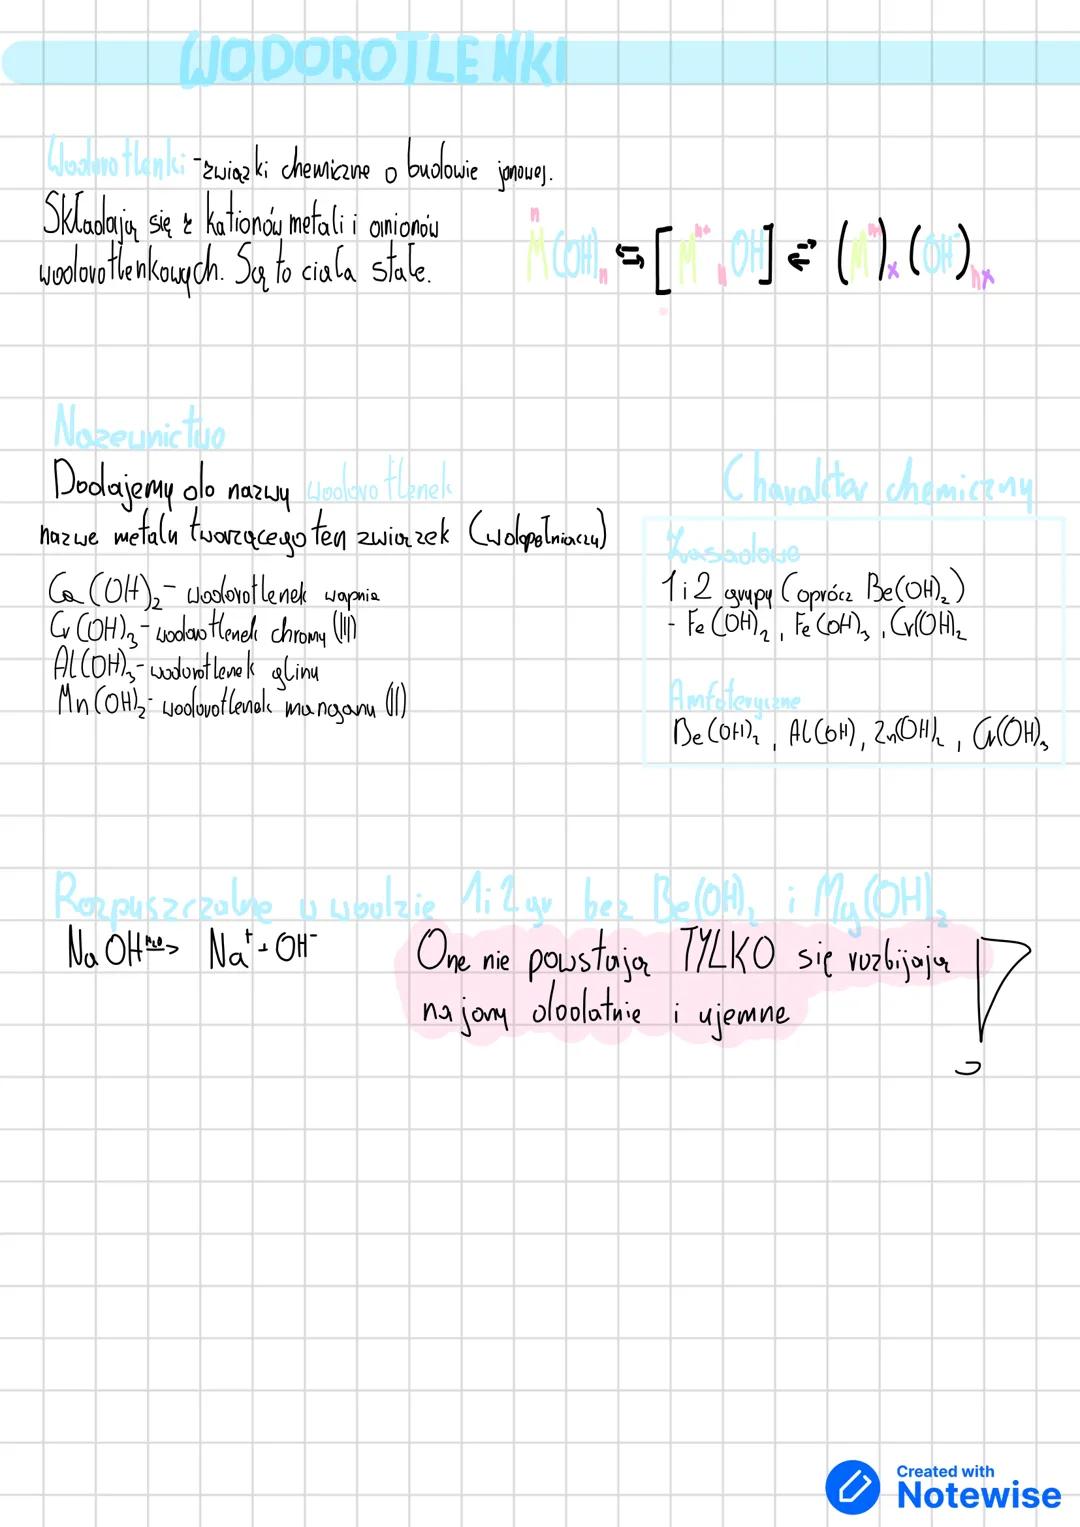 WODOROTLENKI
Wodorotlenki - związki chemiczne o budowie jonowej.
Składają się z kationów metali i anionów
wodorotlenkowych. Są to ciała stałe.
n
M(OH)n ⇆ [Mn+ n OH-] ⇄ (Mn+)x (OH-)nx
Nazewnictwo
Dodajemy do nazwy wodorotlenek
nazwe metalu tworzącego ten związek (w dopełniaczu)
Ca(OH)₂ - wodorotlenek wapnia
Cr(OH)₃ - wodorotlenek chromu (III)
Al(OH)₃ - wodorotlenek glinu
Mn(OH)₂ - wodorotlenek manganu (II)
Charakter chemiczny
Zasadowe
1 i 2 grupy (oprócz Be(OH)₂)
- Fe(OH)₂, Fe(OH)₃, Cr(OH)₂
Amfoteryczne
Be(OH)₂, Al(OH), Zn(OH)₂, Cr(OH)₃
Rozpuszczalne w wodzie 1 i 2 gr bez Be(OH)₂ i Mg(OH)₂
NaOH H₂O> Na⁺ + OH⁻
One nie powstają TYLKO się rozbijają
na jony dodatnie i ujemne !
Created with
Notewise